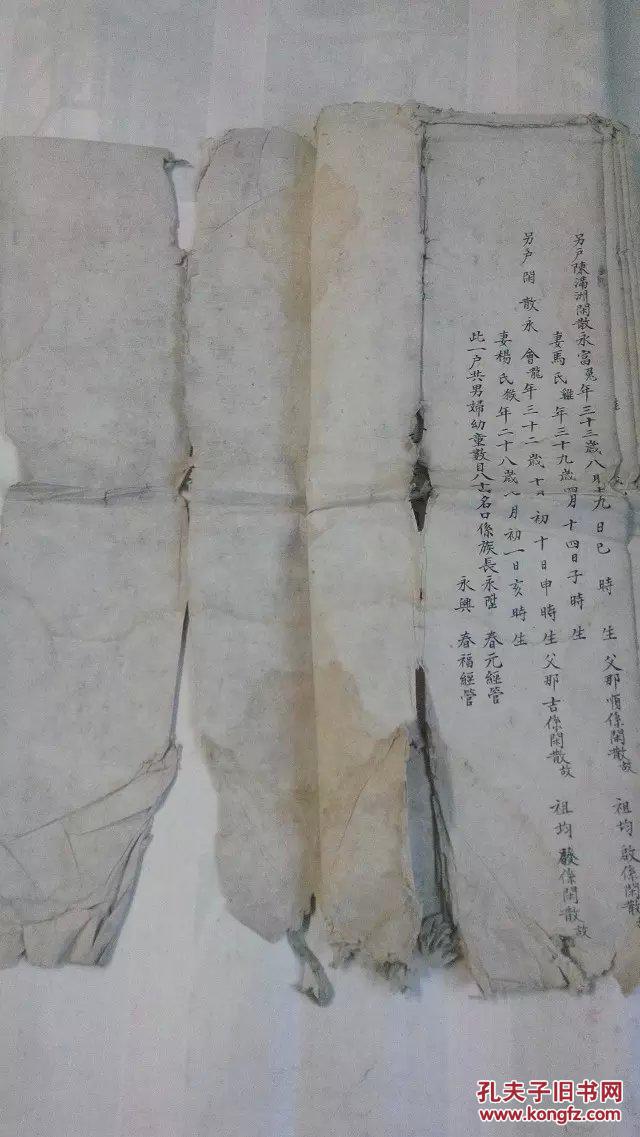 另户陳滿洲閑散永富兎年三十三歲八月十九日巳時生 父那順係閑散故 祖均啟係閑散故
妻馬氏雞年三十九歲四月十四日子時生
另户閑散永會龍年三十二歲十月初十日申時生父那吉係閑散故 祖均啟係閑散故
妻楊氏猴年二十八歲 月初一日亥時生
此一户共男婦幼童數目八十名口係族長永陞 春元經管
永興 春福經管
孔夫子旧书网
www.kongfz.com